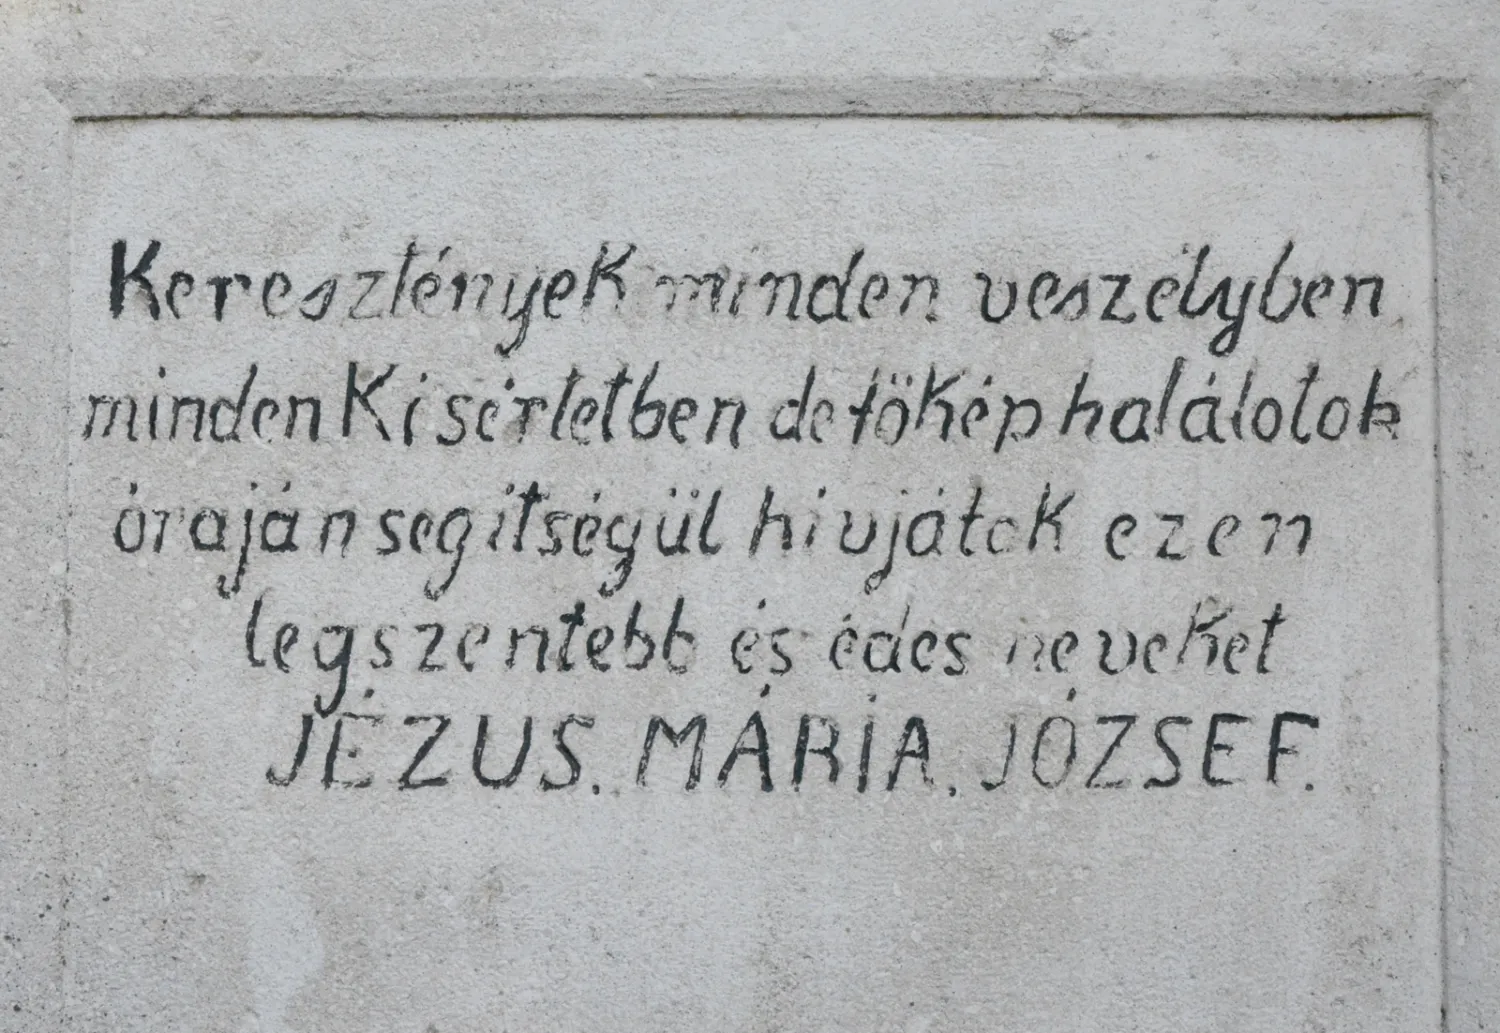 Keresztények minden veszélyben
minden Kisértetben de tökép halálotok
óraján segitségül hivjátok ezen
legszentebb és édes neveket
JÉZUS. MÁRIA. JÓZSEF.